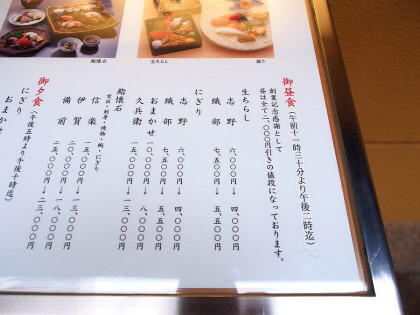 鮨懐石
生ちらし
御昼食（午前十一時三十分より午後二時迄）
創業記念感謝として
昼は全て二、〇〇〇円引きの値段になっております。
生ちらし
志野 六、〇〇〇円→四、〇〇〇円
織部 七、五〇〇円→五、五〇〇円
にぎり
志野 六、〇〇〇円→四、〇〇〇円
織部 七、五〇〇円→五、五〇〇円
おまかせ 一〇、〇〇〇円→八、〇〇〇円
久兵衛 一五、〇〇〇円→一三、〇〇〇円
鮨懐石
信楽 一五、〇〇〇円→一三、〇〇〇円
伊賀 二〇、〇〇〇円→一八、〇〇〇円
備前 二五、〇〇〇円→二三、〇〇〇円
御夕食（午後五時より午後十時迄）
にぎり
おまかせ